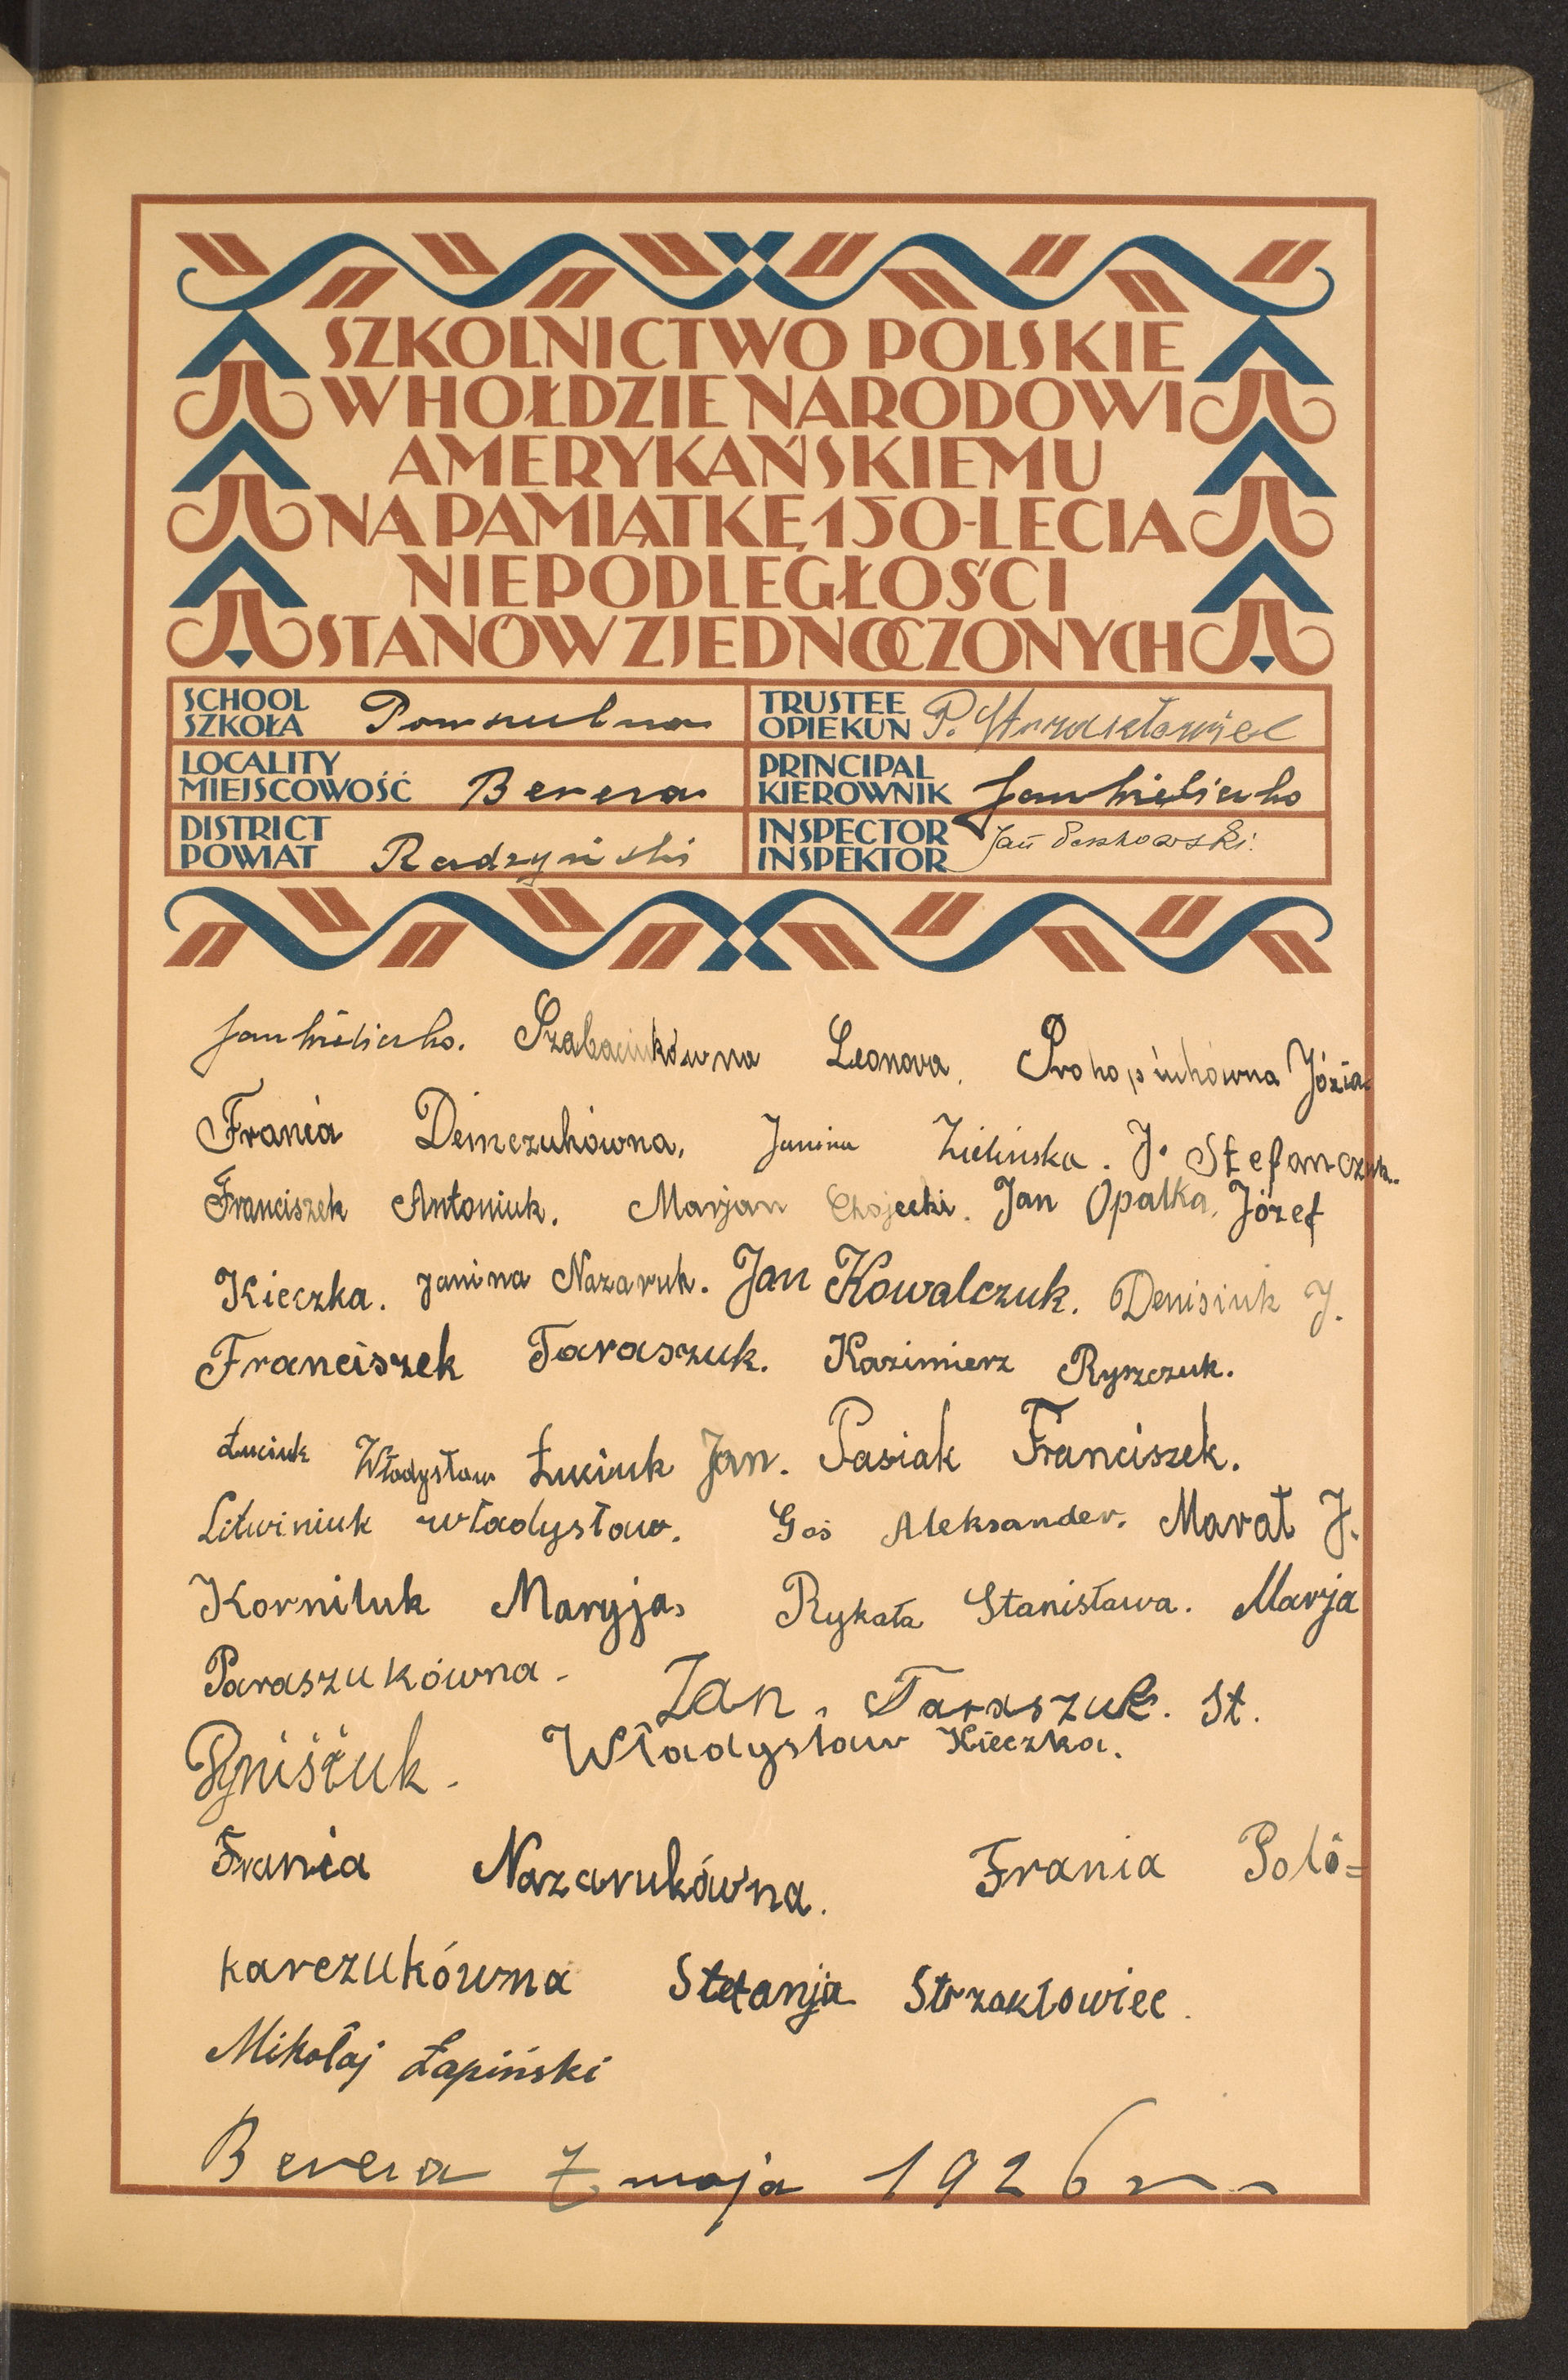 SZKOLNICTWO POLSKIE
W HOŁDZIE NARODOWI
AMERYKAŃSKIEMU
NA PAMIĄTKĘ 150-LECIA
NIEPODLEGŁOŚCI
STANÓW ZJEDNOCZONYCH
SCHOOL
SZKOŁA Powszechna
TRUSTEE
OPIEKUN P. Strzakłowiec
LOCALITY
MIEJSCOWOŚĆ Berera
PRINCIPAL
KIEROWNIK Jan
DISTRICT
POWIAT Radzyński
INSPECTOR
INSPEKTOR Jan
Jan Szabaciukówna Leonora. Prokopiukówna Józia
Frania Demczukówna. Janina Zielińska. J. Stefanczuk.
Franciszek Antoniuk. Marjan Chojecki. Jan Opalka, Józef
Kieczka. Janina Nazaruk. Jan Kowalczuk. Denisiuk J.
Franciszek Taraszuk. Kazimierz Ryszczuk.
Łuciuk Władysław Łuciuk Jan. Pasiak Franciszek.
Litwiniuk władysław. Goś Aleksander. Marat J.
Korniluk Maryja, Rykała Stanisława. Marja
Paraszukówna - Jan. Taraszuk. St.
Władysław Kieczka.
Frania Nazarukówna. Frania Poló=
karczukówna Stefanja Strzakłowiec.
Mikołaj Łapiński
Berera 7 maja 1926 r.